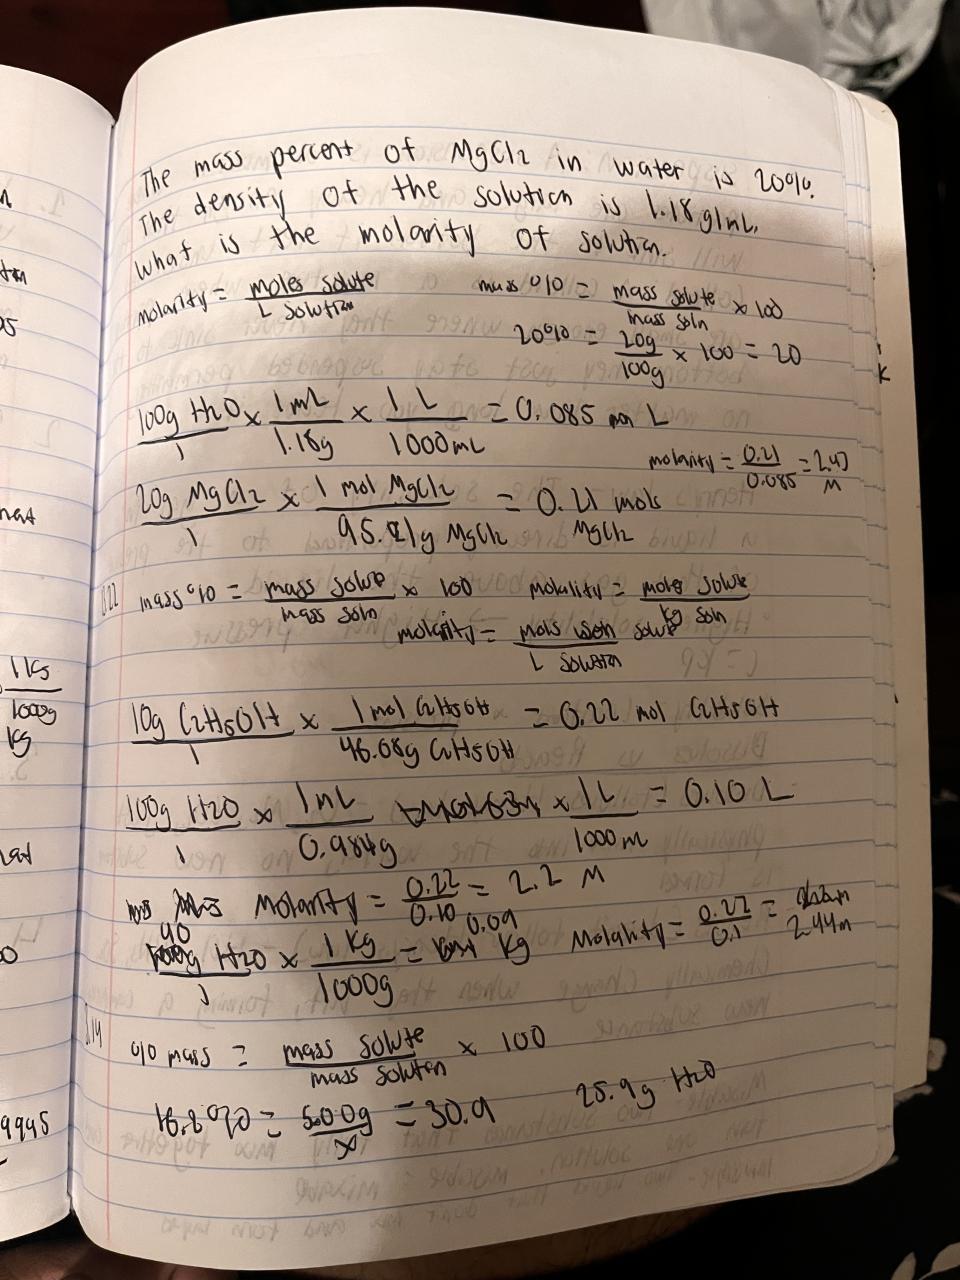 The mass percent of MgCl2 in water is 20%.
The density of the solution is 1.18g/mL.
What is the molarity of solution.
molarity = moles solute / L solution
mass % = mass solute / mass soln × 100
20% = 20g / 100g × 100 = 20
100g H2O / 1 × 1 mL / 1.18g × 1 L / 1000 mL = 0.085 L
molarity = 0.21 / 0.085 = 2.47 M
20g MgCl2 / 1 × 1 mol MgCl2 / 95.21g MgCl2 = 0.21 mols MgCl2
mass % = mass solute / mass soln × 100
molality = moles solute / kg soln
molarity = mols solute / L solution
10g C2H5OH / 1 × 1 mol C2H5OH / 46.08g C2H5OH = 0.22 mol C2H5OH
100g H2O / 1 × 1 mL / 0.984g × 1 L / 1000 m = 0.10 L
Molarity = 0.22 / 0.10 = 2.2 M
90 g H2O / 1 × 1 kg / 1000g = 0.09 kg
Molality = 0.22 / 0.1 = 2.44m
.14
% mass = mass solute / mass soluton × 100
16.2% = 5.00g / x = 30.9
25.9g H2O
k
1 kg
1000g
kg
9995